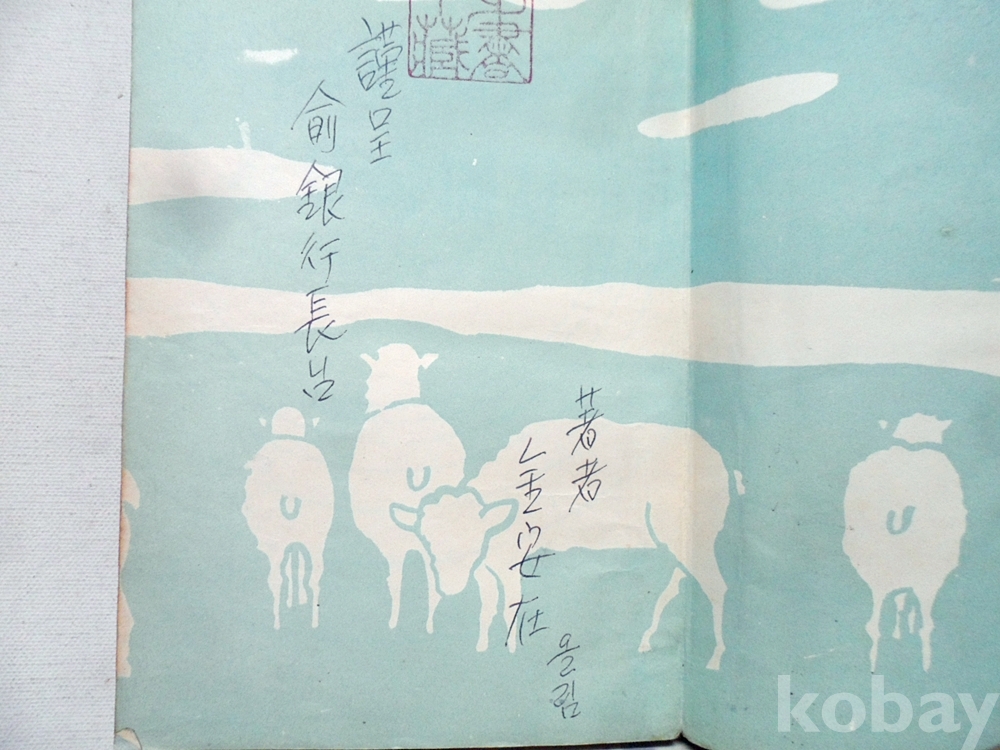 謹呈
俞銀行長님
著者
金安在
올림
kobay